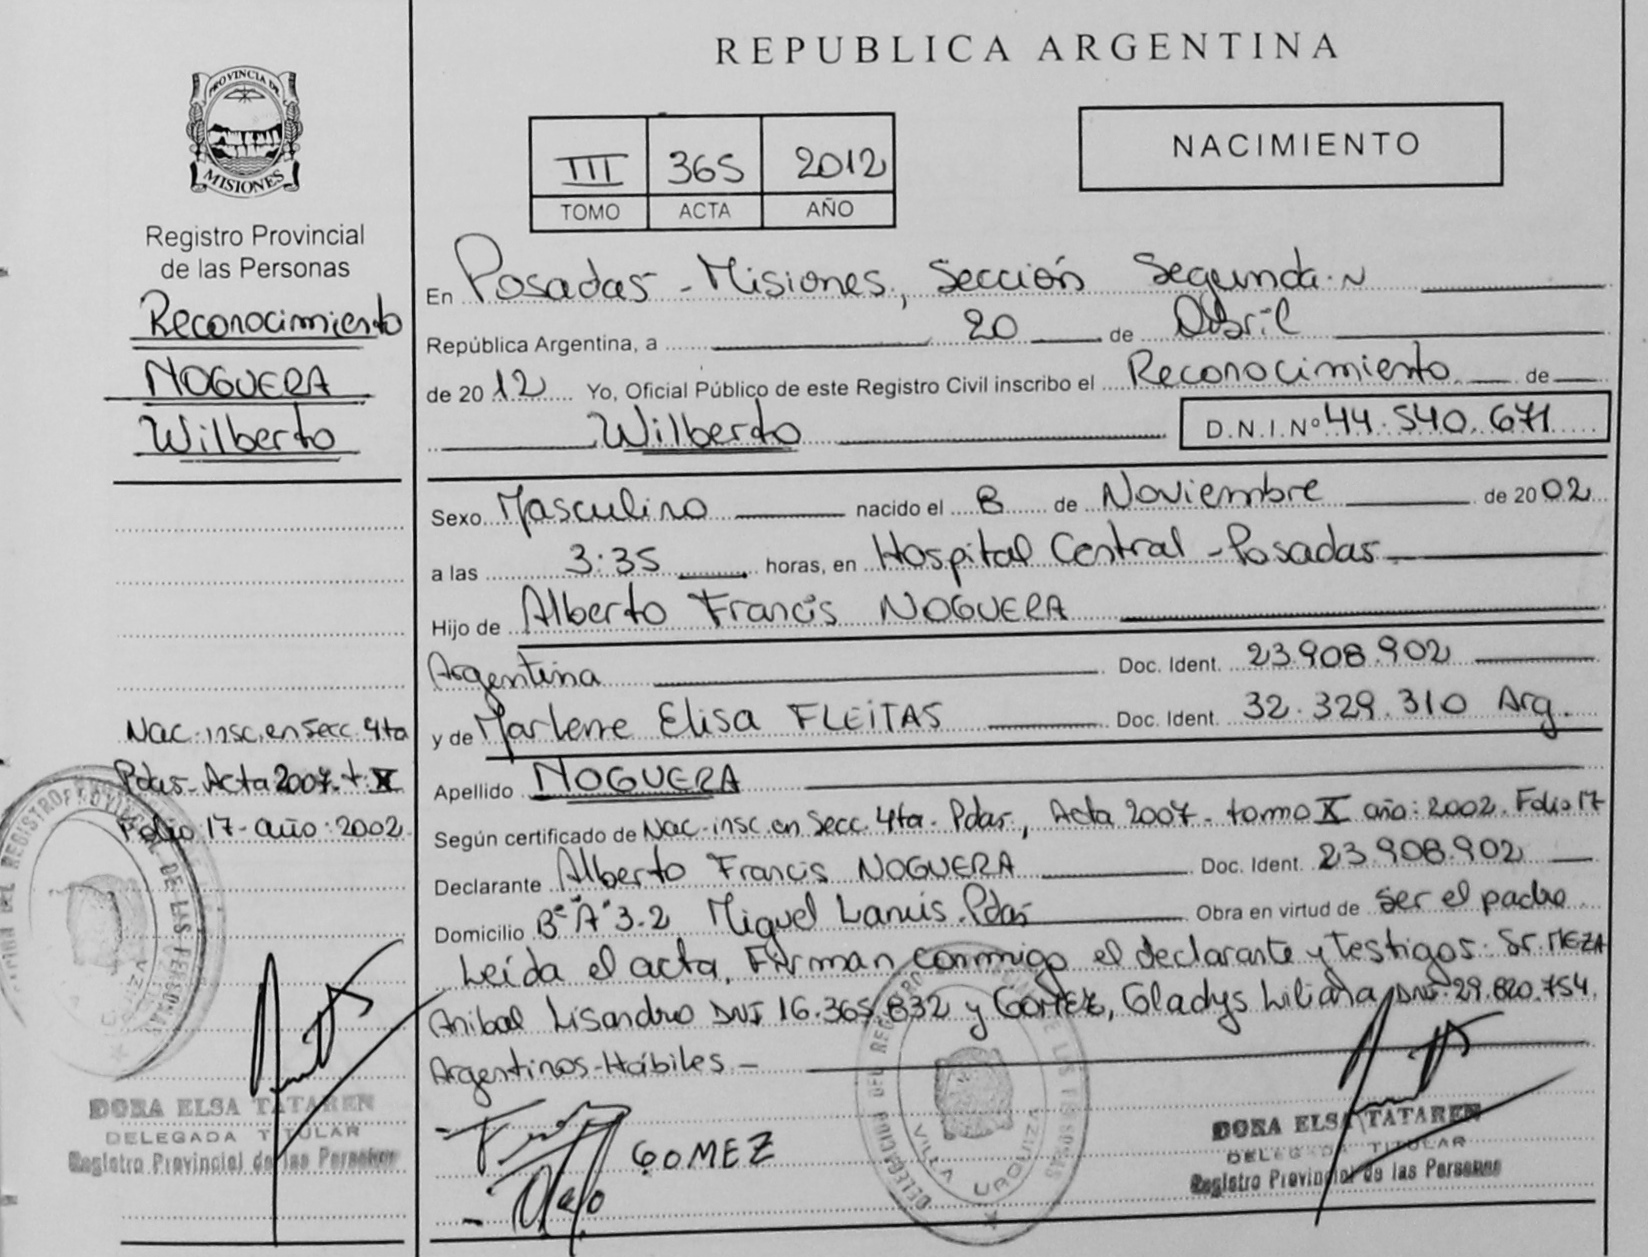 REPUBLICA ARGENTINA
PROVINCIA DE
MISIONES
III 365 2012
TOMO ACTA AÑO
NACIMIENTO
Registro Provincial
de las Personas
Reconocimiento
NOGUERA
Wilberto
En Posadas - Misiones, Sección Segunda
República Argentina, a 20 de Abril
de 2012 Yo, Oficial Público de este Registro Civil inscribo el Reconocimiento de
Wilberto D.N.I.Nº 44.540.671
Sexo Masculino nacido el 8 de Noviembre de 2002
a las 3:35 horas, en Hospital Central - Posadas
Hijo de Alberto Francis NOGUERA
Argentina Doc. Ident. 23.908.902
y de Marlene Elisa FLEITAS Doc. Ident. 32.329.310 Arg.
Apellido NOGUERA
Según certificado de Nac. insc. en Secc. 4ta. Pdas, Acta 2007. tomo X año: 2002. Folio 17
Declarante Alberto Francis NOGUERA Doc. Ident. 23.908.902
Domicilio Bº "A" 3.2 Miguel Lanús. Pdas Obra en virtud de ser el padre
Leída el acta, Firman conmigo el declarante y testigos: Sr. MEZA
Anibal Lisandro DNI 16.365.832 y GOMEZ, Gladys Liliana DNI: 29.820.754.
Argentinos - Hábiles -
GOMEZ
Nac. insc. en Secc. 4ta
Pdas. Acta 2007. t. X
Folio 17 - año: 2002.
DORA ELSA TATAREN
DELEGADA TITULAR
Registro Provincial de las Personas
DELEGACION DEL REGISTRO PROVINCIAL DE LAS PERSONAS
VILLA URQUIZA
DORA ELSA TATAREN
DELEGADA TITULAR
Registro Provincial de las Personas